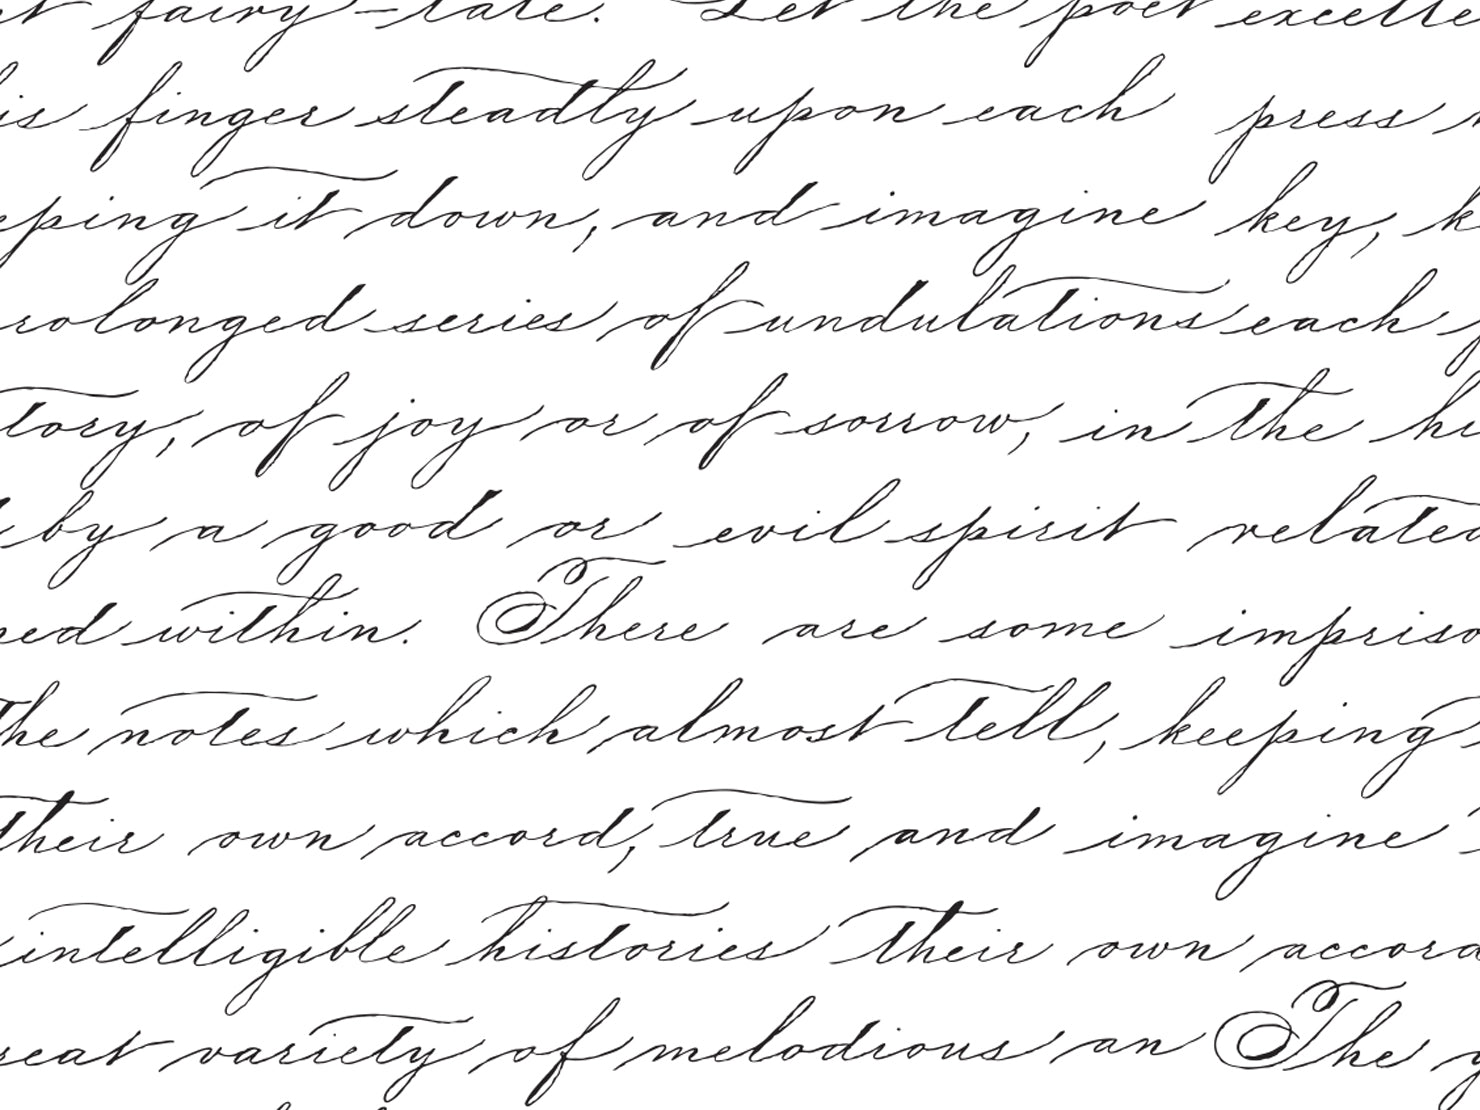 t fairy-tale. Let the poet excelle
is finger steadly upon each press
eping it down, and imagine key, k
rolonged series of undulations each
tory, of joy or of sorrow, in the hi
by a good or evil spirit related
ned within. There are some impriso
the notes which almost tell, keeping
their own accord, true and imagine
intelligible histories their own accord
reat variety of melodious an The g